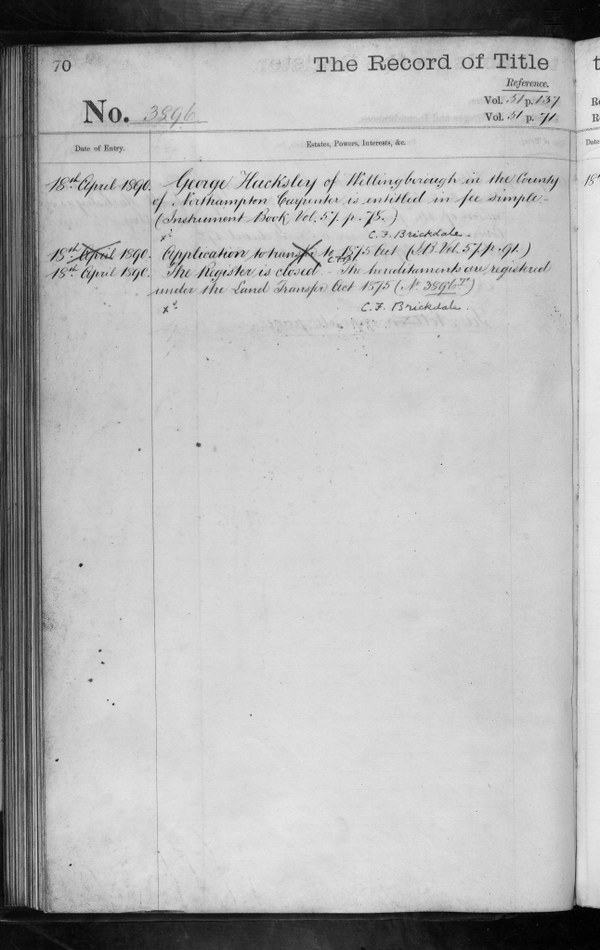 70
The Record of Title
Reference.
Vol. 51 p. 137
No. 3896
Vol. 51 p. 71
Date of Entry.
Estates, Powers, Interests, &c.
18th April 1890. George Hucksley of Wellingborough in the County
of Northampton Carpenter is entitled in fee simple -
(Instrument Book Vol. 57. p. 78.)
xd
C. F. Brickdale.
18th April 1890. Application to transfer to 1875 Act (I.B. Vol. 57. p. 91.)
18th April 1890. The Register is closed - The hereditaments are registered
under the Land Transfer Act 1875 (No 3896T)
xd
C. F. Brickdale.